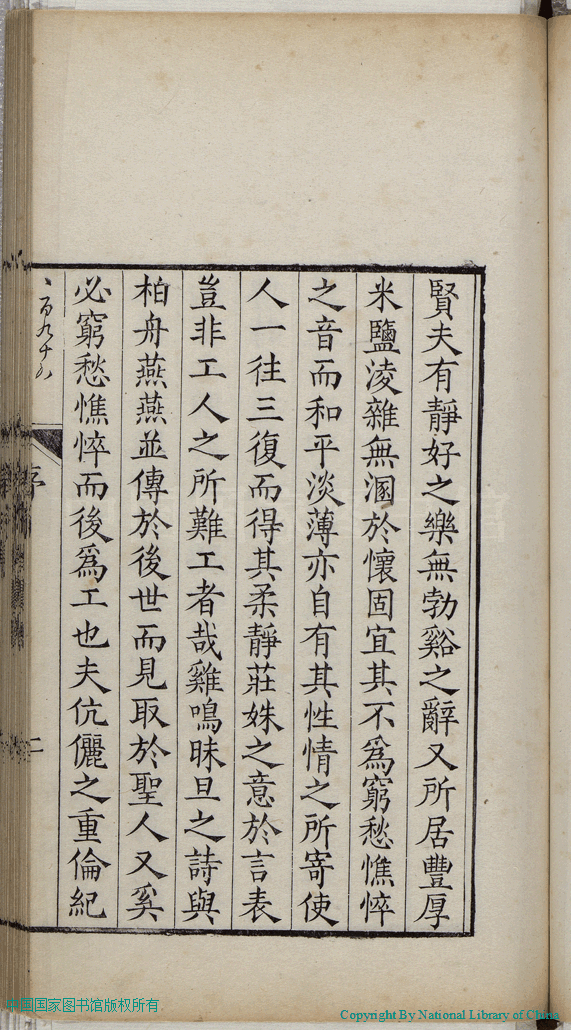 賢夫有靜好之樂無勃谿之辭又所居豐厚
米鹽淩雜無溷於懷固宜其不爲窮愁憔悴
之音而和平淡薄亦自有其性情之所寄使
人一往三復而得其柔靜莊姝之意於言表
豈非工人之所難工者哉雞鳴昧旦之詩與
柏舟燕燕並傳於後世而見取於聖人又奚
必窮愁憔悴而後爲工也夫伉儷之重倫紀
序
二
中国国家图书馆版权所有
Copyright By National Library of China